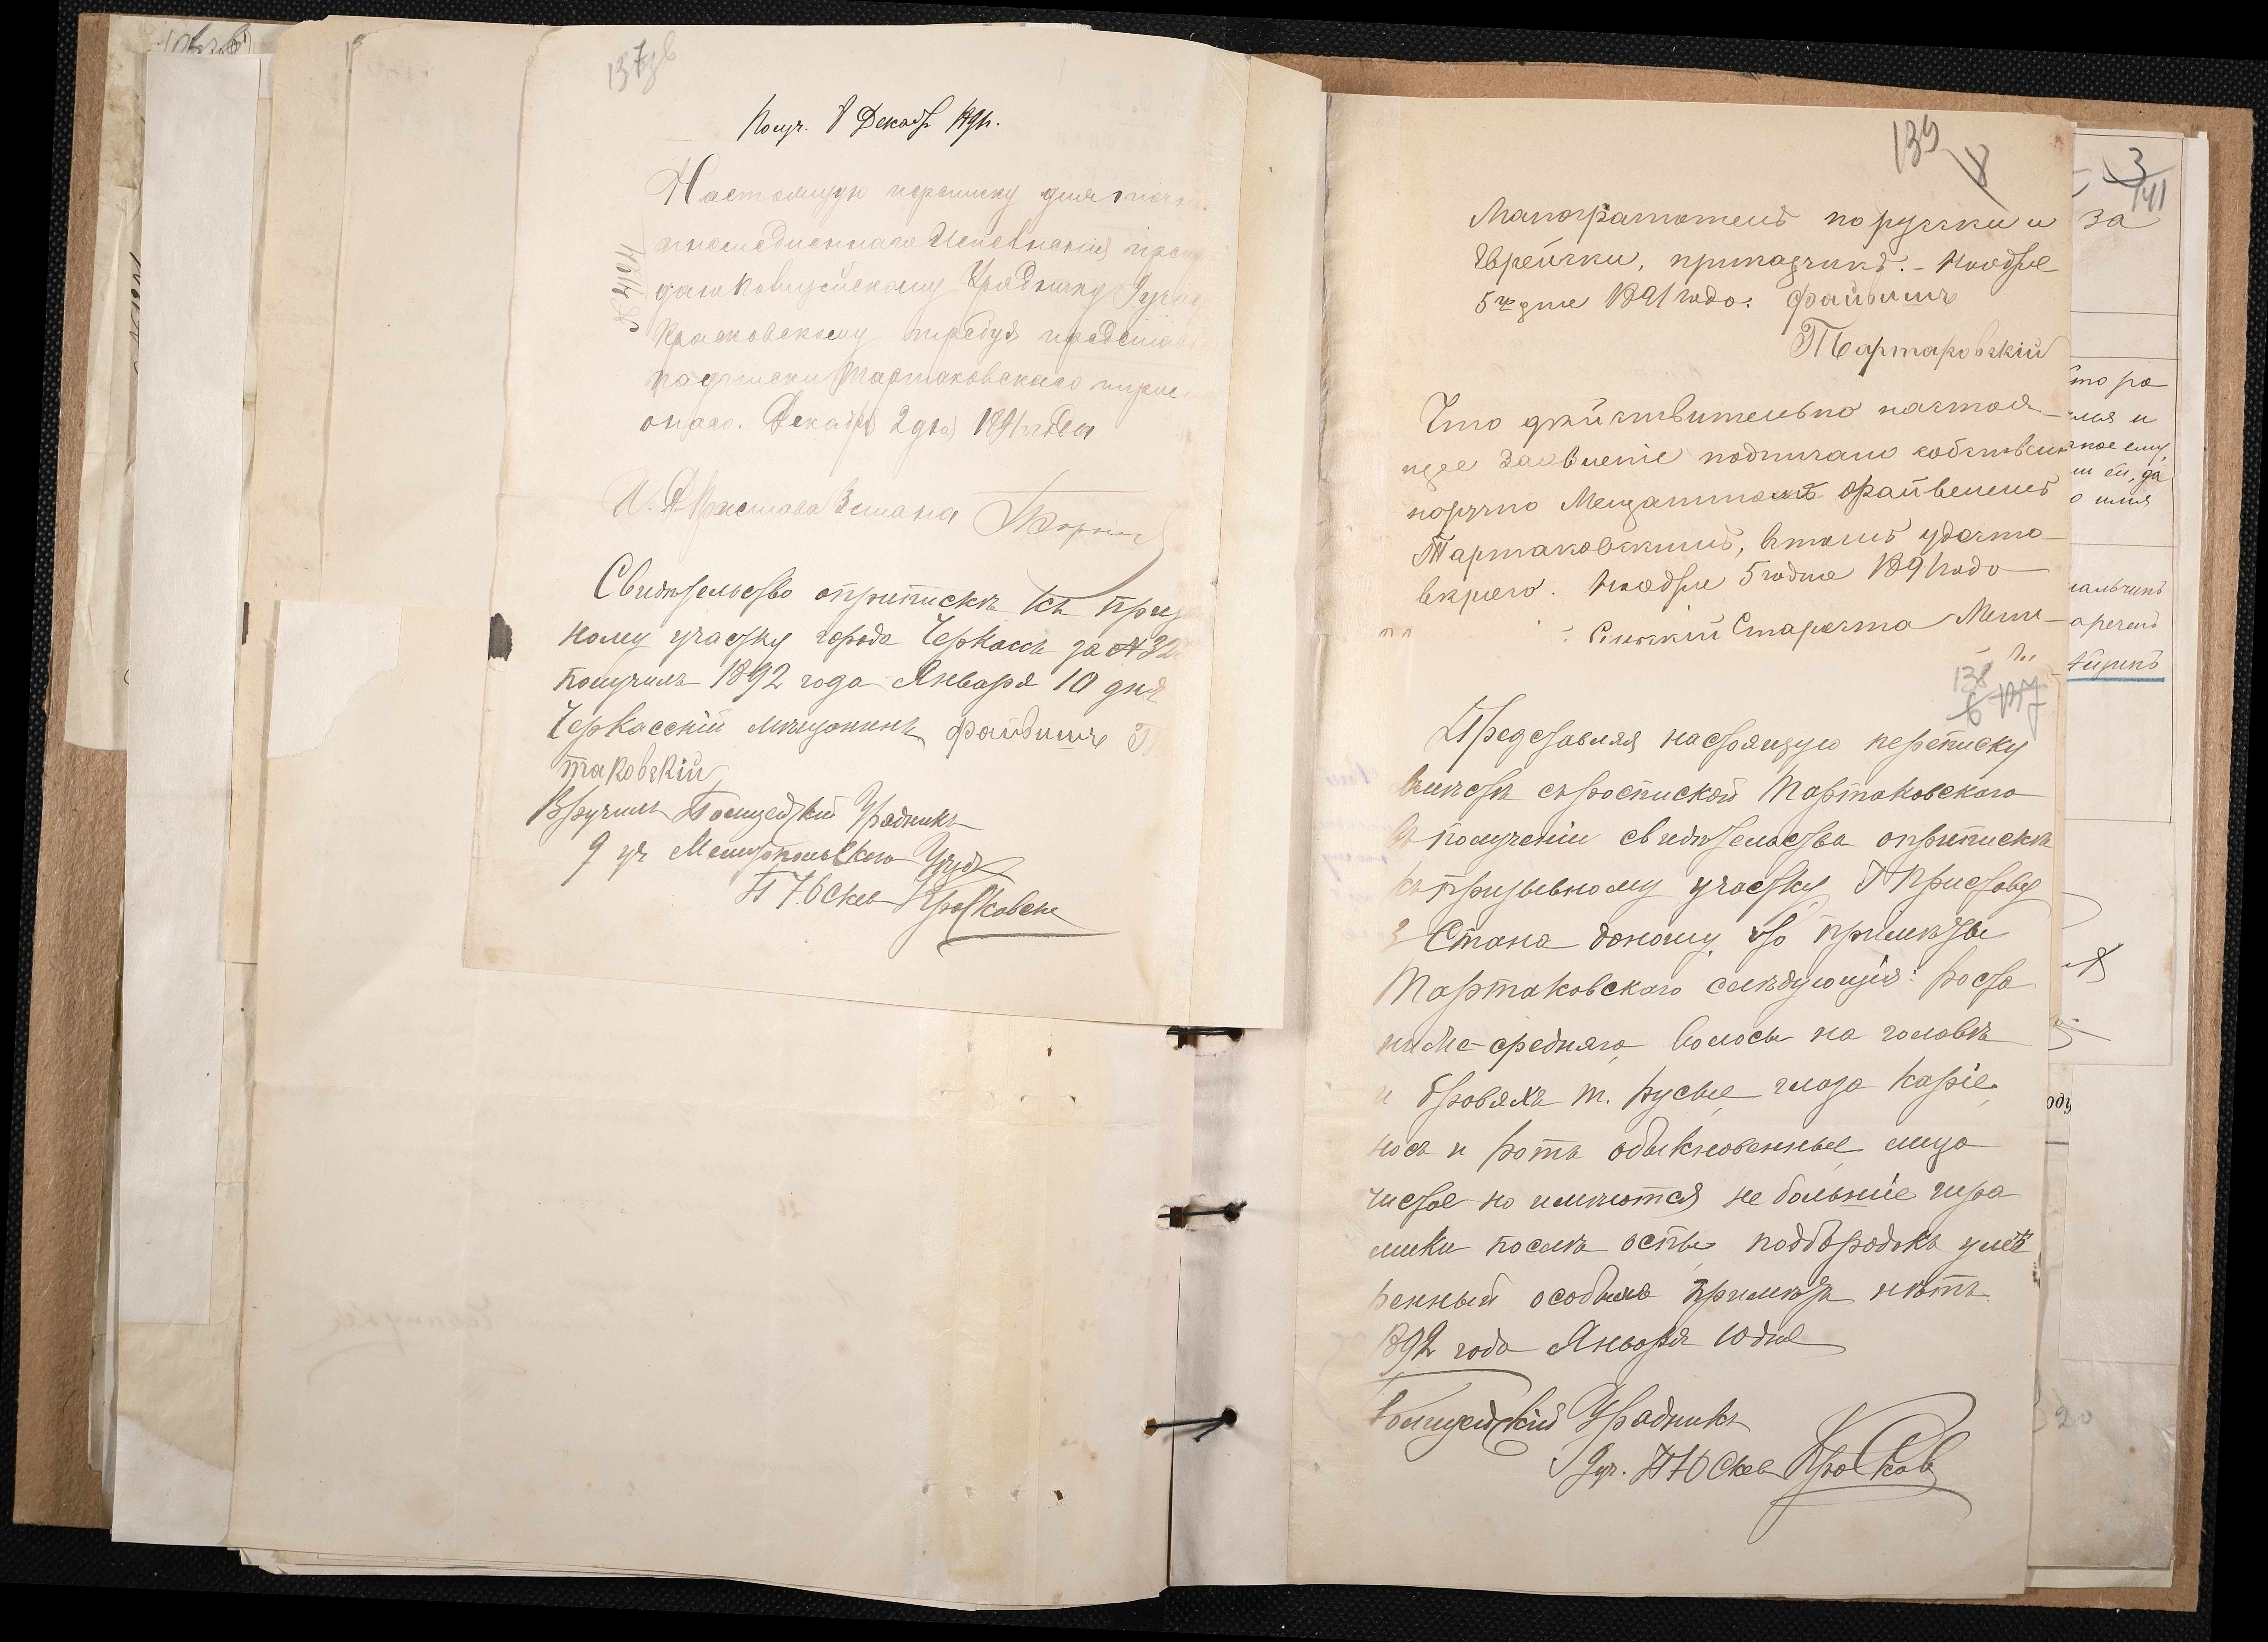 137об
Получ. 8 Декабр 1891г.
Настоящую переписку для
немедленнаго Исполненія
даю Полицейскому Уряднику 9 уч
Красковскому требуя представ
подписки Тартаковскаго
онаго. Декабря 2 дня 1891 года
И. Д. Пристава 3 стана
Свидѣтельство о припискѣ къ призы
ному участку города Черкасъ за № 32
получилъ 1892 года Января 10 дня
Черкасскій мѣщанинъ Файвишъ Т
таковскій
Вручилъ Полицейскій Урядникъ
9 уч
139
8
Малограмотенъ по русски и
Еврейски, приказчикъ. - Ноября
5го дня 1891 года. Файвишъ
Тартаковскій
Что дѣйствительно настоя-
щее заявленіе подписано собствен
норучно Мещаниномъ Файвишемъ
Тартаковскимъ, въ томъ удосто-
веряю. Ноября 5 го дня 1891 года
Сельскій Староста
138
6
Представляя настоящую переписку
вмѣстѣ съ роспиской Тартаковского
въ полученіи свидѣтельства о припискѣ
къ призывному участку, Г Приставу
3 Стана доношу, что примѣты
Тартаковского слѣдующія: роста
ниже-средняго, волосы на головѣ
и бровяхъ т. русые, глаза каріе,
носъ и ротъ обыкновенные лицо
чистое но имѣются не большіе шра
мики послѣ оспы, подбородокъ умѣ
ренный особыхъ примѣтъ нѣтъ.
1892 года Января 10 дня
Полицейскій Урядникъ
9 уч.
3
141
за